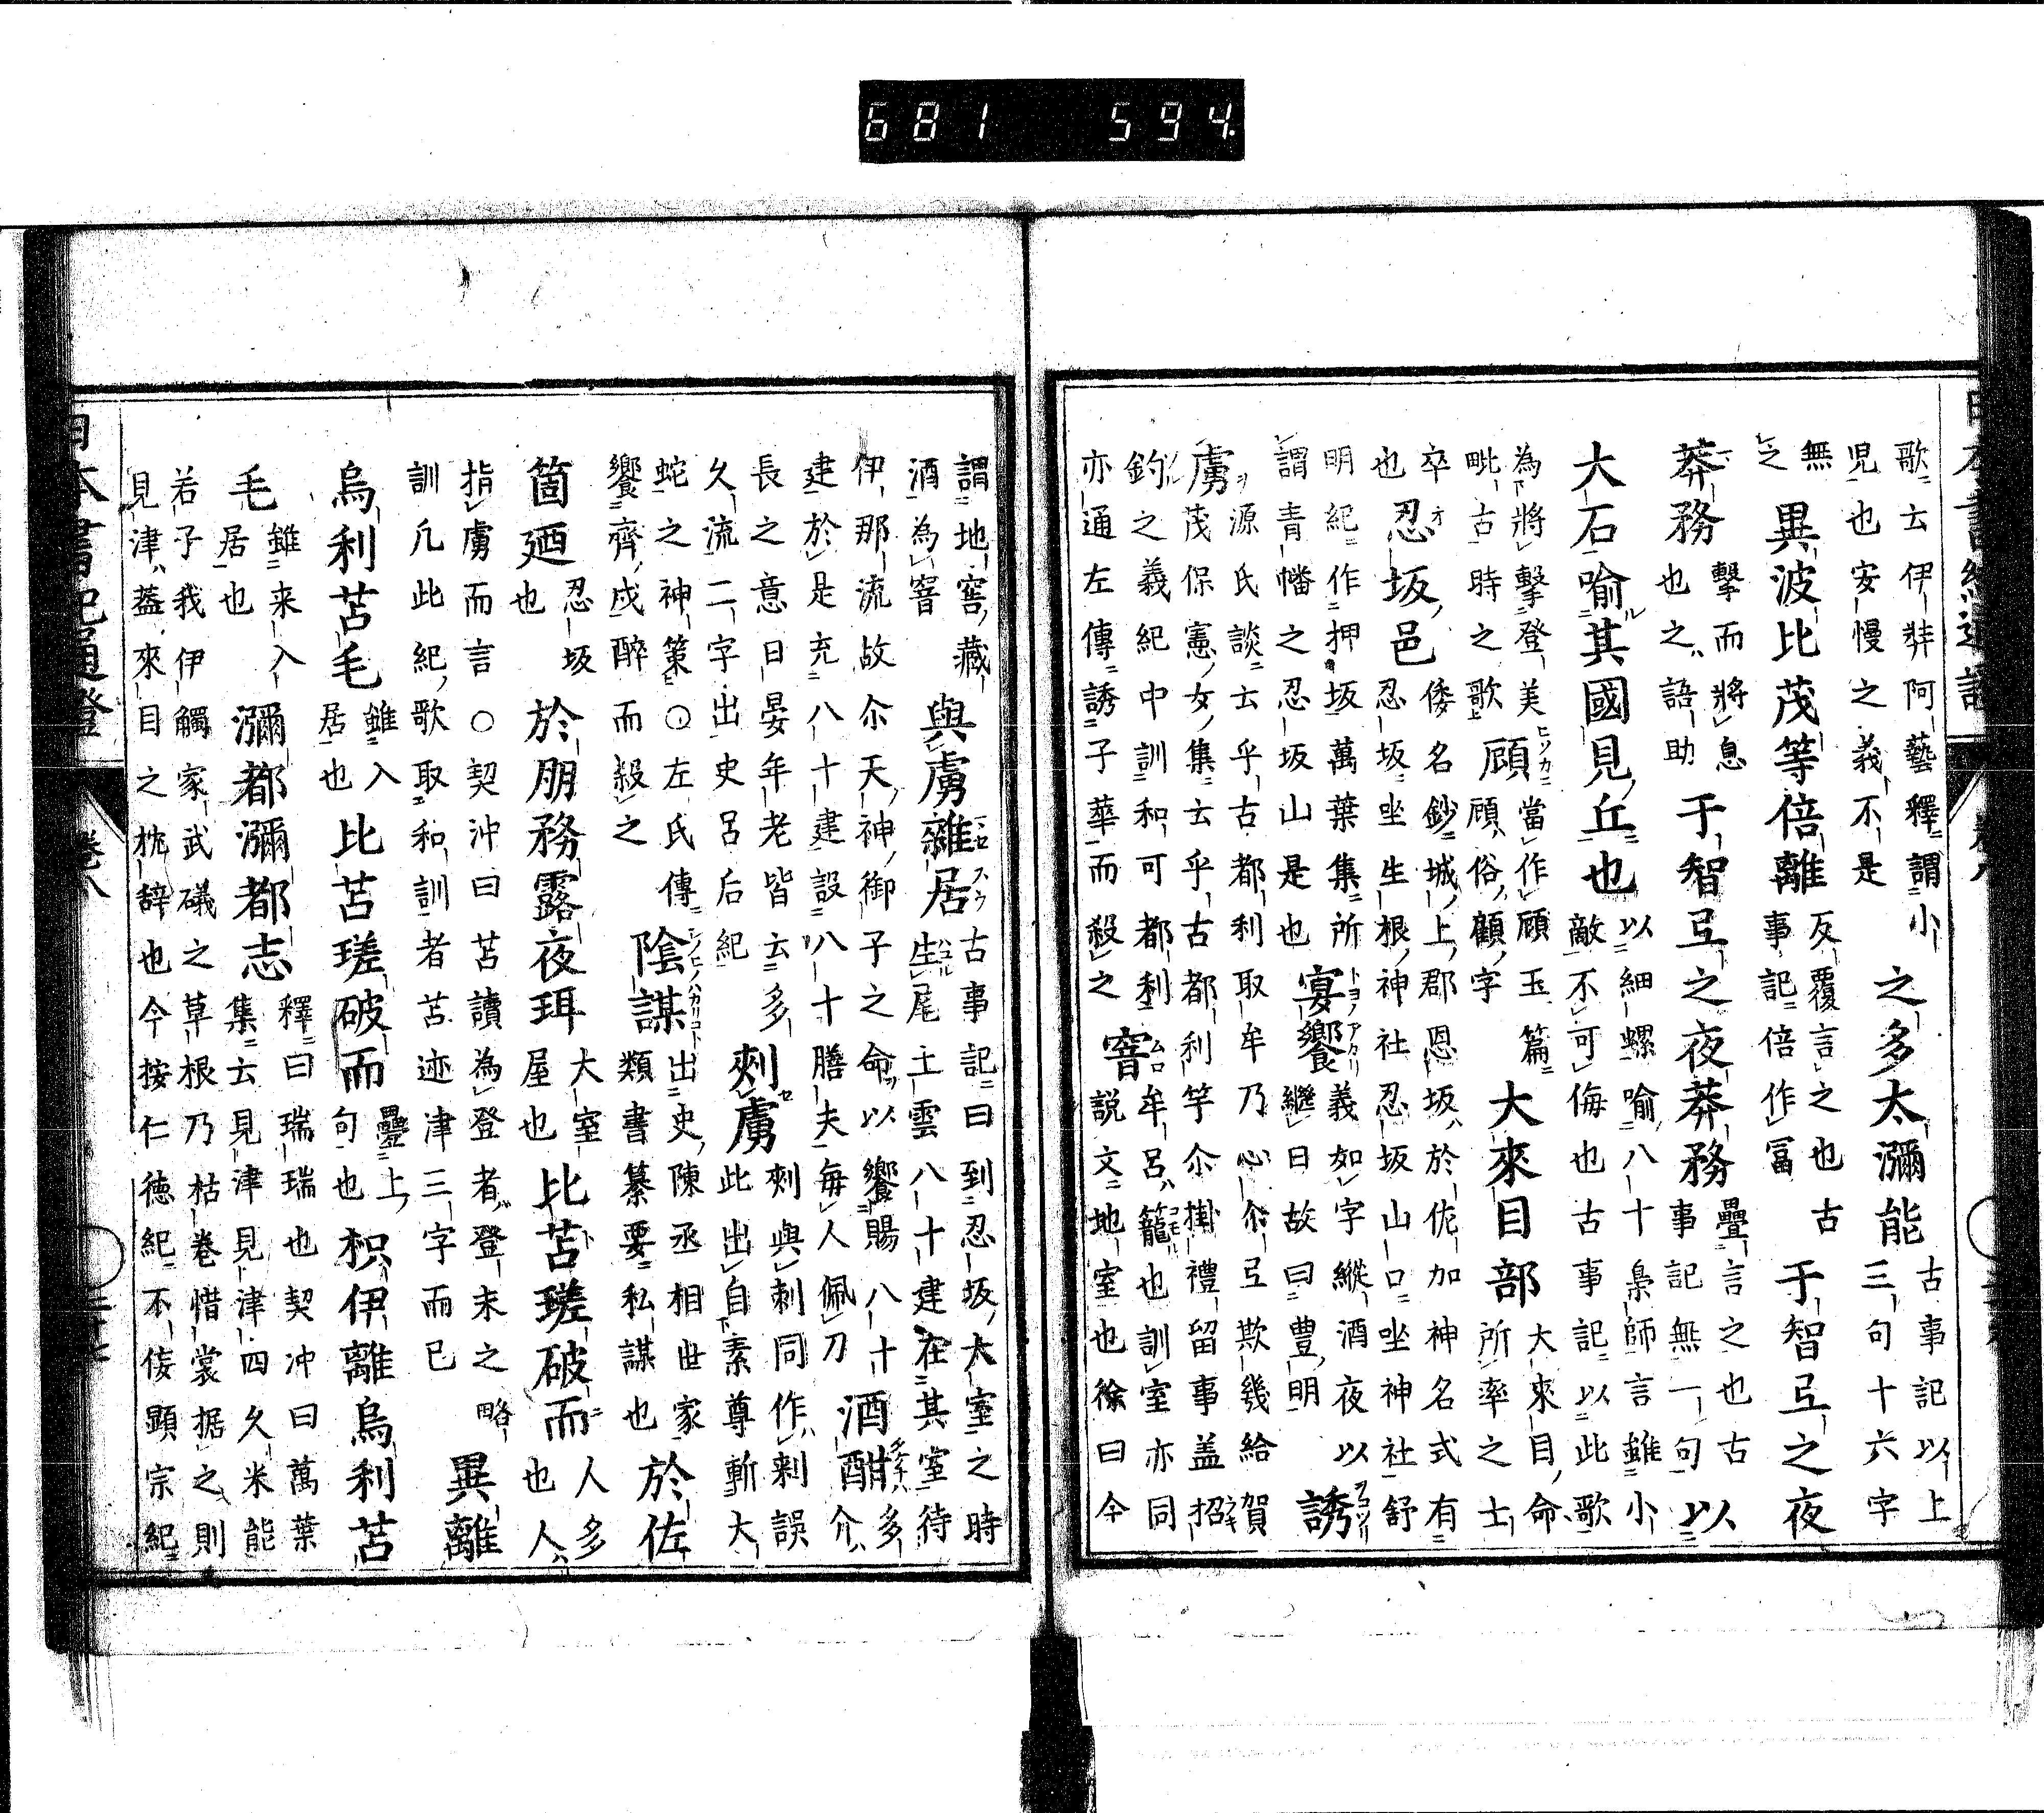 歌云伊弉阿藝釋謂小
児也安慢之義不是
之多太瀰能
古事記以上
三句十六字
無
之
異波比茂等倍離
反覆言之也古
事記倍作冨
于智弖之夜
莽務
擊而將息
也之語助
于智弖之夜莽務
疊言之也古
事記無一句
以
大石喻其國見丘也
以細螺喻八十梟師言雖小
敵不可侮也古事記以此歌
為將擊登美
毗古時之歌
顧
當作顧玉篇
顧俗顧字
大來目部
大來目命
所率之士
卒
也
忍坂邑
倭名鈔城上郡恩坂於佐加神名式有
忍坂坐生根神社忍坂山口坐神社舒
明紀作押坂萬葉集所
謂青幡之忍坂山是也
宴饗
義如字縱酒夜以
繼日故曰豊明
誘
虜
源氏談云乎古都利取牟乃心尒弖欺幾給賀
茂保憲女集云乎古都利竿尒掛禮留事盖招
鈎之義紀中訓和可都利
亦通左傳誘子華而殺之
窨
牟呂籠也訓室亦同
説文地室也徐曰今
謂地窖藏
酒為窨
與虜雜居
古事記曰到忍坂大室之時
生尾土雲八十建在其室待
伊那流故尒天神御子之命以饗賜八十
建於是充八十建設八十膳夫毎人佩刀
酒酣
多
介
長之意日晏年老皆云多
久流二字出史呂后紀
刺虜
刺與刺同作剌誤
此出自素尊斬大
蛇之神策○左氏傳
饗齊戍醉而殺之
陰謀
出史陳丞相世家
類書纂要私謀也
於佐
箇廼
忍坂
也
於朋務露夜珥
大室
屋也
比苫瑳破而
人多
也人
指虜而言○契沖曰苫讀為登者登末之略
訓凡此紀歌取和訓者苫迹津三字而已
異離
烏利苫毛
雖入
居也
比苫瑳破而
疊上
句也
枳伊離烏利苫
毛
雖来入
居也
瀰都瀰都志
釋曰瑞瑞也契沖曰萬葉
集云見津見津四久米能
若子我伊觸家武礒之草根乃枯巻惜裳据之則
見津盖來目之枕辞也今按仁徳紀不倿顕宗紀
日本書紀通證
巻八
681 594